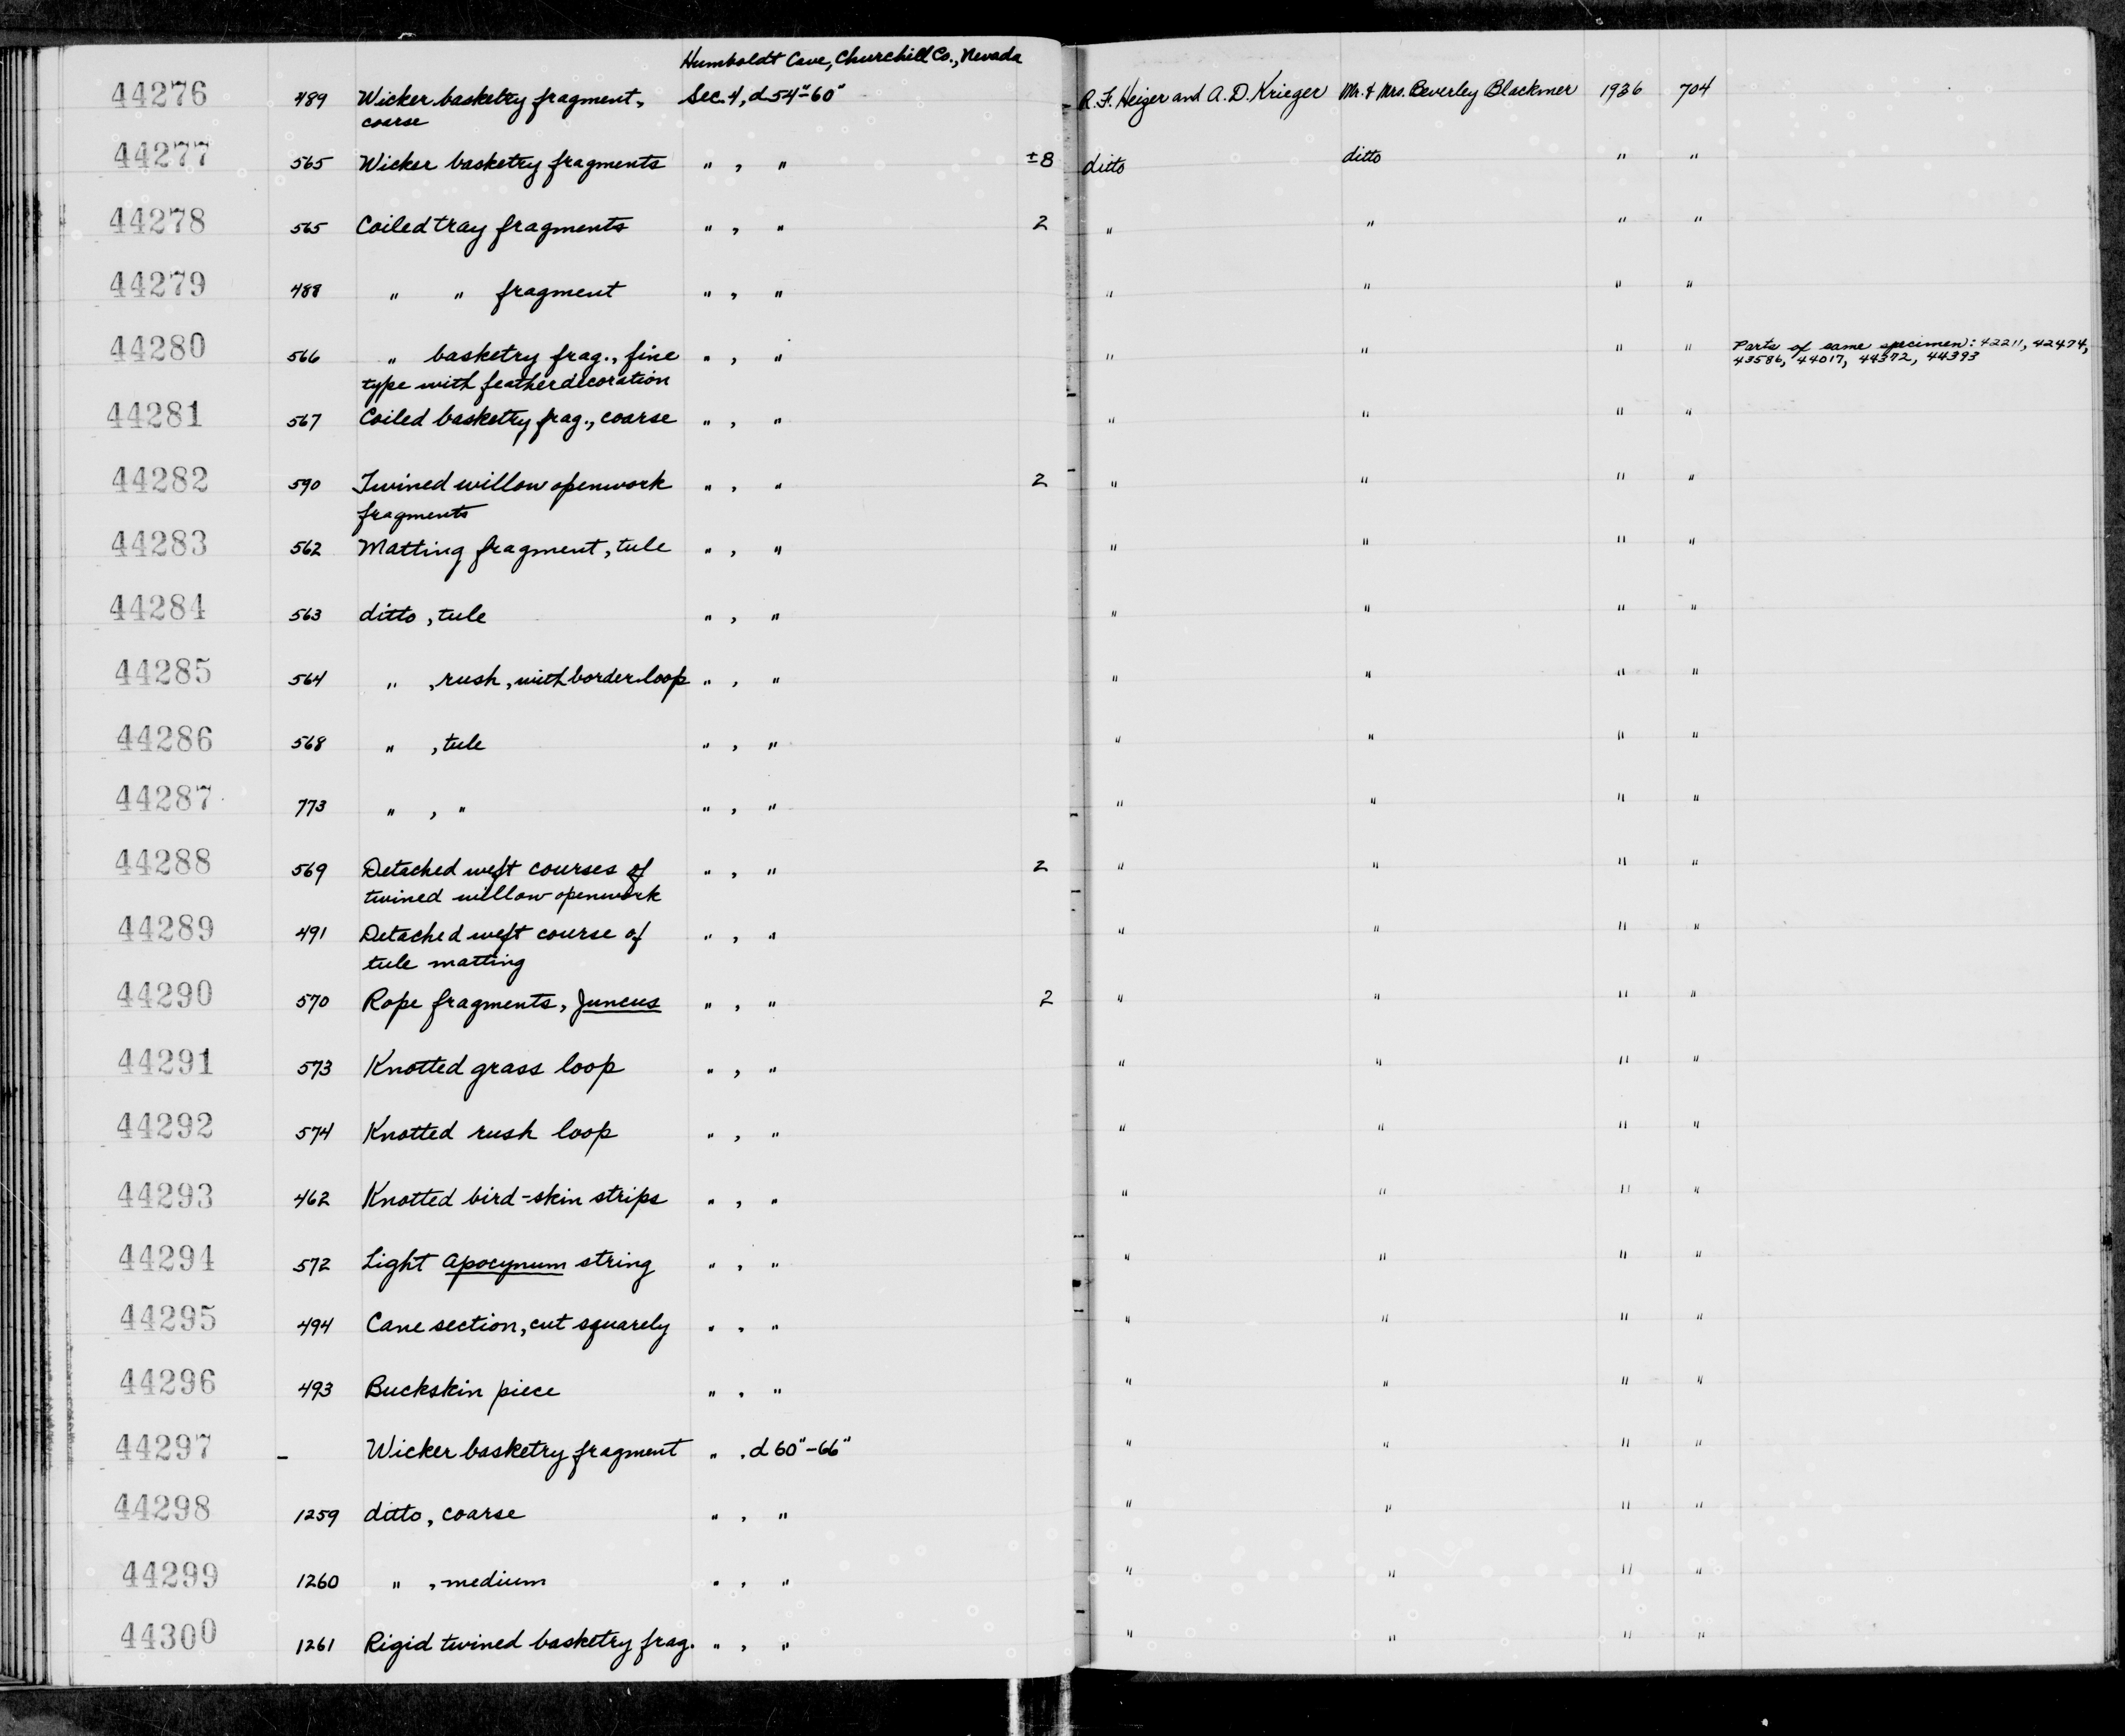 Humboldt Cave, Churchill Co., Nevada
44276 489 Wicker basketry fragment, Sec. 4, d 54"-60" R. F. Heizer and A. D. Krieger Mr. & Mrs. Beverley Blackmer 1936 704
coarse
44277 565 Wicker basketry fragments " , " ±8 ditto ditto " "
44278 565 Coiled tray fragments " , " 2 " " " "
44279 488 " " fragment " , " " " " "
44280 566 " basketry frag., fine " , " " " " " Parts of same specimen: 42211, 42474,
type with feather decoration 43586, 44017, 44372, 44393
44281 567 Coiled basketry frag., coarse " , " " " " "
44282 590 Twined willow openwork " , " 2 " " " "
fragments
44283 562 Matting fragment, tule " , " " " " "
44284 563 ditto, tule " , " " " " "
44285 564 " , rush, with border loop " , " " " " "
44286 568 " , tule " , " " " " "
44287 773 " , " " , " " " " "
44288 569 Detached weft courses of " , " 2 " " " "
twined willow openwork
44289 491 Detached weft course of " , " " " " "
tule matting
44290 570 Rope fragments, Juncus " , " 2 " " " "
44291 573 Knotted grass loop " , " " " " "
44292 574 Knotted rush loop " , " " " " "
44293 462 Knotted bird-skin strips " , " " " " "
44294 572 Light Apocynum string " , " " " " "
44295 494 Cane section, cut squarely " , " " " " "
44296 493 Buckskin piece " , " " " " "
44297 - Wicker basketry fragment " , d 60"-66" " " " "
44298 1259 ditto, coarse " , " " " " "
44299 1260 " , medium " , " " " " "
44300 1261 Rigid twined basketry frag. " , " " " " "